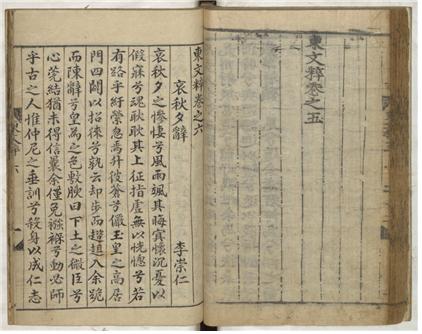 東文粹卷之五
東文粹卷之六
哀秋夕辭
李崇仁
哀秋夕之慘悽兮風雨颯其晦冥懷沉憂以
假寐兮魂耿耿其上征指虛無以恍惚兮若
有路乎紆縈忽焉升彼蒼兮儼玉皇之高居
門四闢以招徠兮孰云却步而趑趄入余跪
而陳辭兮皇爲之色敷腴曰下土之微臣兮
心菀結猶未得信曩余僅免襁褓兮動必師
乎古之人惟仲尼之垂訓兮殺身以成仁志